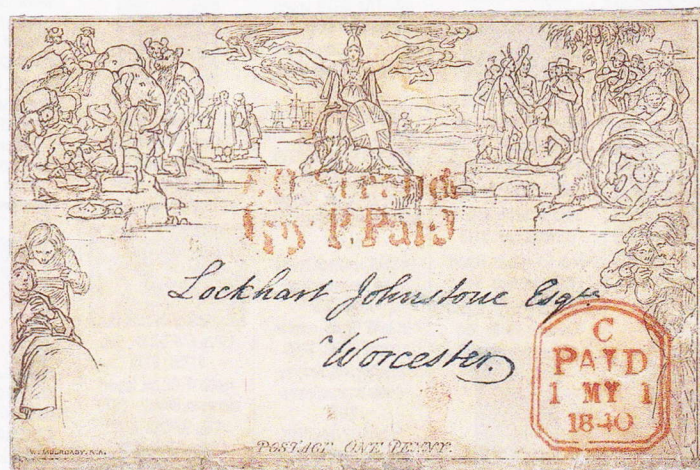 Strand
Ty P. Paid
Lockhart Johnstone Esqre
Worcester.
C
PAID
1 MY 1
1840
W. MULREADY, R.A.
POSTAGE ONE PENNY.